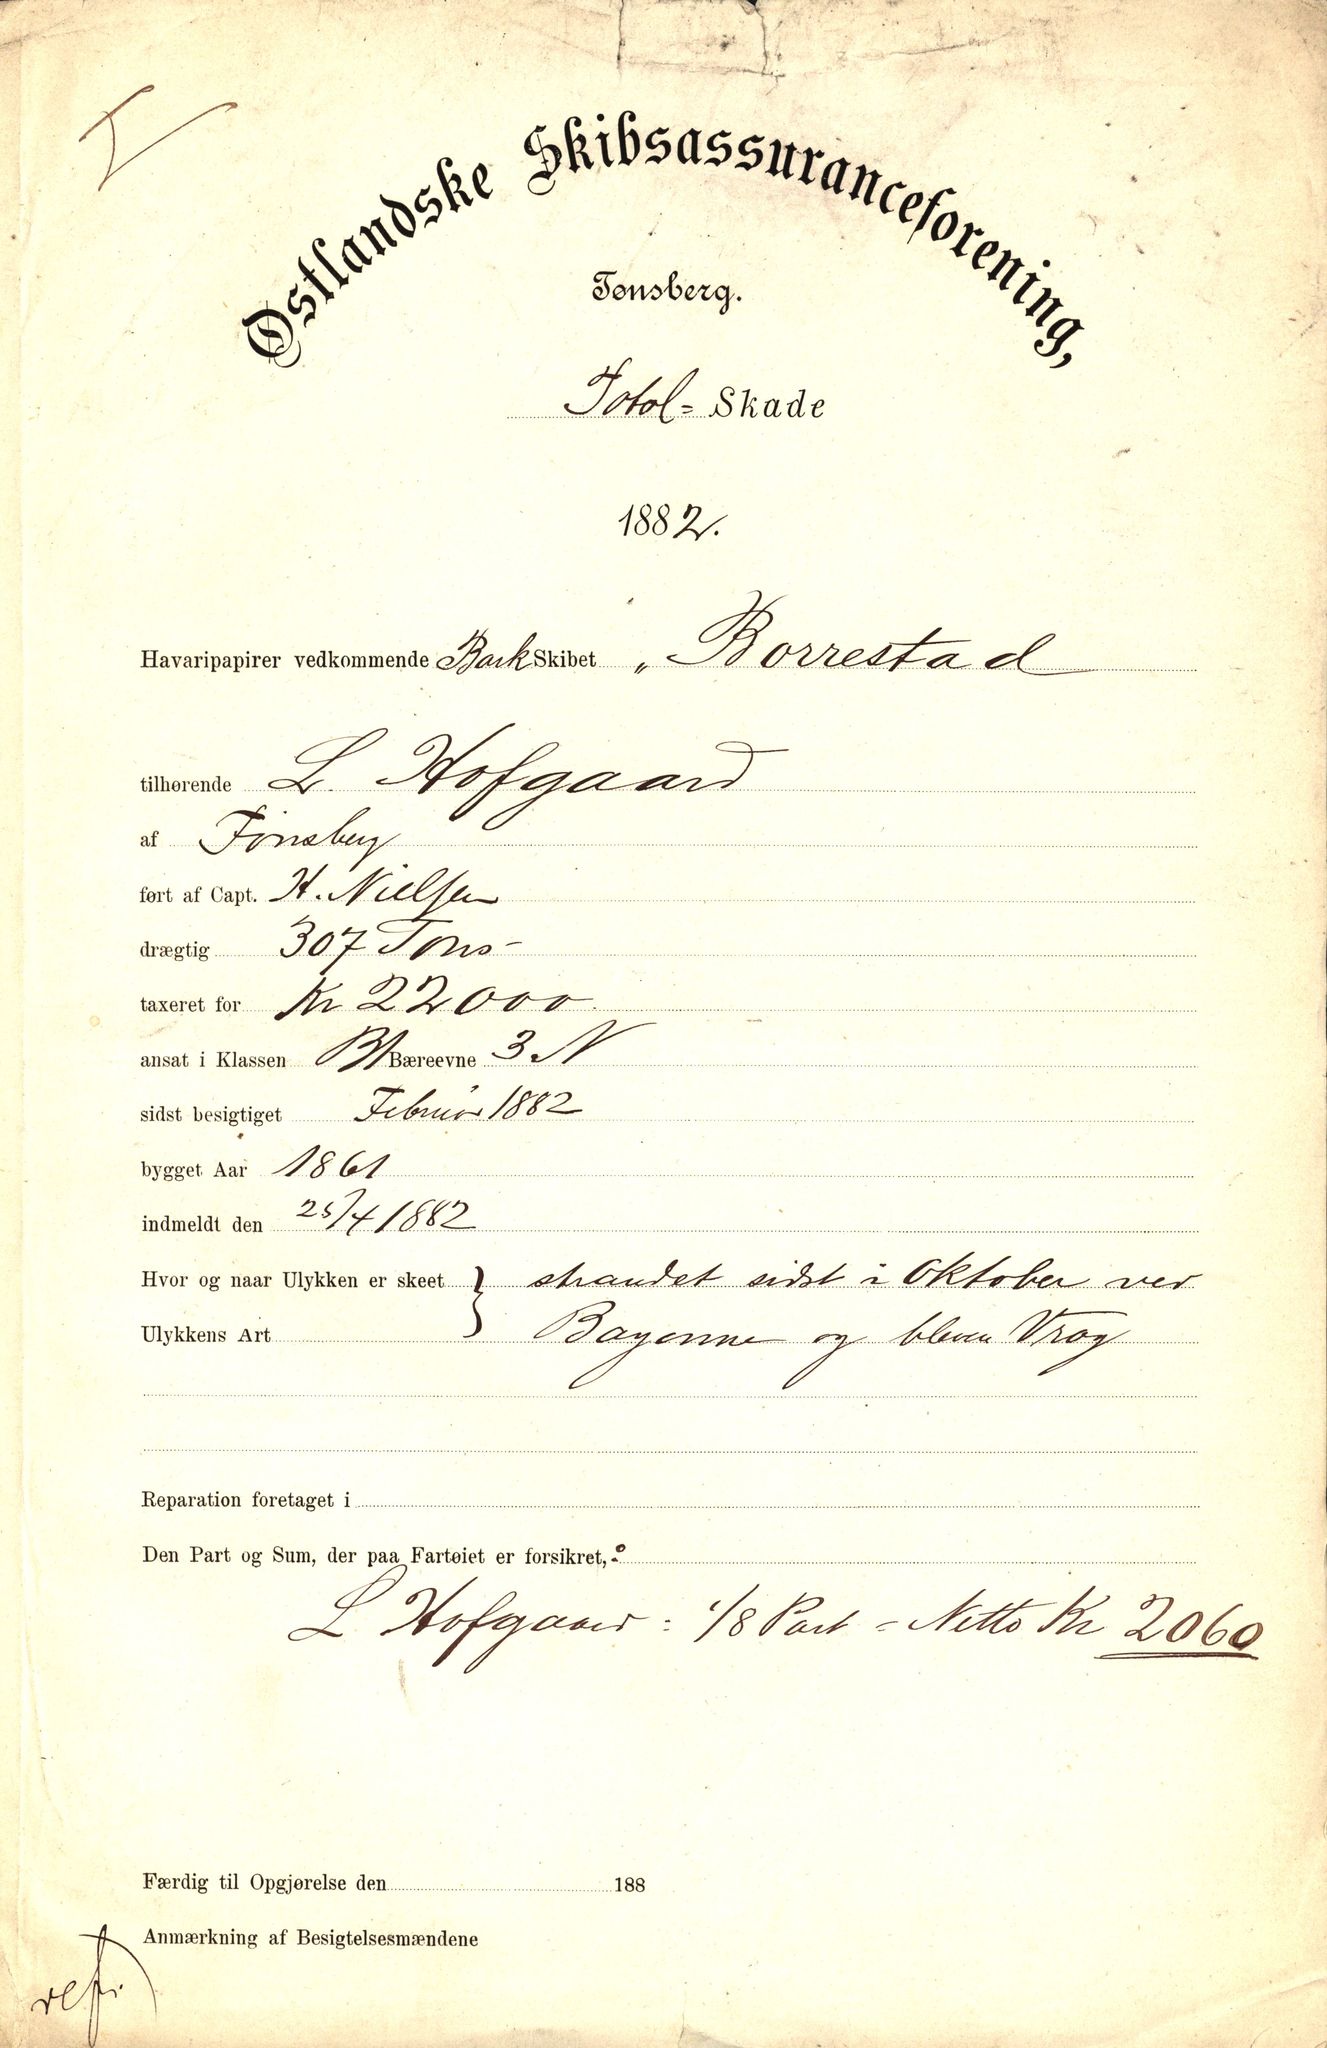 Østlandske Skibsassuranceforening,
Tønsberg.
Total- Skade
1882.
Havaripapirer vedkommende Bark Skibet „ Borrestad
tilhørende L. Hofgaard
af Tønsberg
ført af Capt. H. Nielsen
drægtig 307 Tons
taxeret for Kr 22000
ansat i Klassen B1 Bæreevne 3 N
sidst besigtiget Februar 1882
bygget Aar 1861
indmeldt den 25/4 1882
Hvor og naar Ulykken er skeet } strandet sidst i Oktober ved
Ulykkens Art Bayonne og bleven Vrag
Reparation foretaget i
Den Part og Sum, der paa Fartøiet er forsikret,:
L Hofgaard : 1/8 Part = Netto Kr 2060
Færdig til Opgjørelse den 188
Anmærkning af Besigtelsesmændene